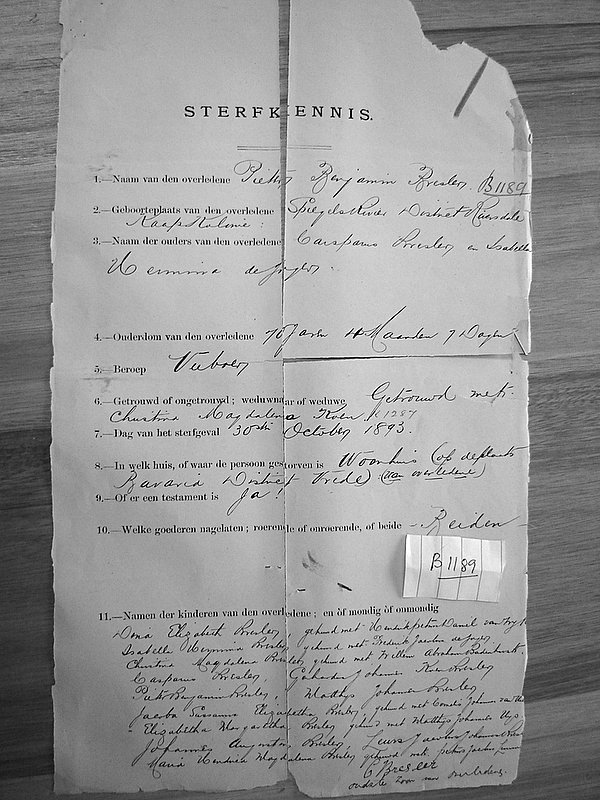 STERFKENNIS.
1.—Naam van den overledene Pieter Benjamin Bresler B1189
2.—Geboorteplaats van den overledene Spiegels River District
Kaap Kolonie
3.—Naam der ouders van den overledene Casparus Bresler en Isabella
Hermina de Jager
4.—Ouderdom van den overledene 70 Jaren 4 Maanden 7 Dagen
5.—Beroep Veeboer
6.—Getrouwd of ongetrouwd; weduwnaar of weduwe. Getrouwd met
Christina Magdalena Koen K1287
7.—Dag van het sterfgeval 30ste October 1893.
8.—In welk huis, of waar de persoon gestorven is Woonhuis (op de plaats
Bavaria District Vrede) (van overledene)
9.—Of er een testament is Ja!
10.—Welke goederen nagelaten; roerende of onroerende, of beide - Beiden -
B1189
11.—Namen der kinderen van den overledene; en òf mondig òf onmondig
Elizabeth Bresler, gehuwd met Hendrik Petrus Daniel van
Isabella Hermina Bresler, gehuwd met Frederik Jacobus de Jager
Christina Magdalena Bresler, gehuwd met Willem Abraham Badenhorst
Casparus Bresler, Johannes Koen Bresler
Pieter Benjamin Bresler, Matthys Johannes Bresler
Jacoba Susanna Elizabetha Bresler, gehuwd met Johannes van
Elizabetha Margaretha Bresler gehuwd met Matthys Johannes Uys
Johannes Bresler, Louis Jacobus Johannes
Maria Hendrina Magdalena Bresler gehuwd met Petrus Jacobus
C Bresler
oudste zoon van overledene.